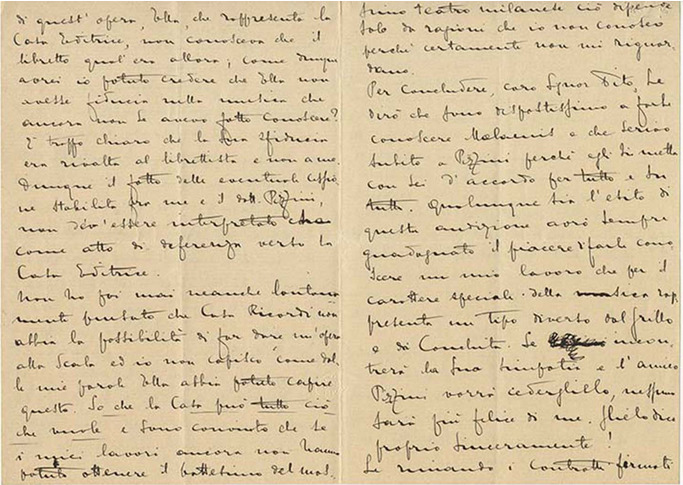 di quest'opera, Ella, che rappresenta la
Casa Editrice, non conosceva che il
libretto qual'era allora; come dunque
avrei io potuto credere che Ella non
avesse fiducia nella musica che
ancora non Le avevo fatto conoscere?
È troppo chiaro che la Sua sfiducia
era rivolta al librettista e non a me.
Dunque il fatto delle eventuali cessio
ne stabilita fra me e il dott. Pizzini,
non dev'essere interpretato
come atto di deferenza verso la
Casa Editrice.
Non ho poi mai neanche lontana
mente pensato che Casa Ricordi non
abbia la possibilità di far dare un'opera
alla Scala ed io non capisco come dal
le mie parole Ella abbia potuto capire
questo. So che la Casa può tutto ciò
che vuole e sono convinto che se
i miei lavori ancora non hanno
potuto ottenere il battesimo del mas-
simo teatro milanese ciò dipende
solo da ragioni che io non conosco
perché certamente non mi riguar-
dano.
Per concludere, caro Signor Tito, Le
dirò che sono dispostissimo a farle
conoscere e che scrivo
subito a Pizzini perché egli si metta
con Lei d'accordo per tutto e su
tutto. Qualunque sia l'esito di
questa audizione avrò sempre
guadagnato il piacere di farle cono
scere un mio lavoro che per il
carattere speciale della musica rap
presenta un tipo diverso dal Grillo
e di Se incon
trerà la Sua simpatia e l'amico
Pizzini vorrà cederglielo, nessuno
sarà più felice di me. Glielo dico
proprio sinceramente!
Le rimando i contratti firmati